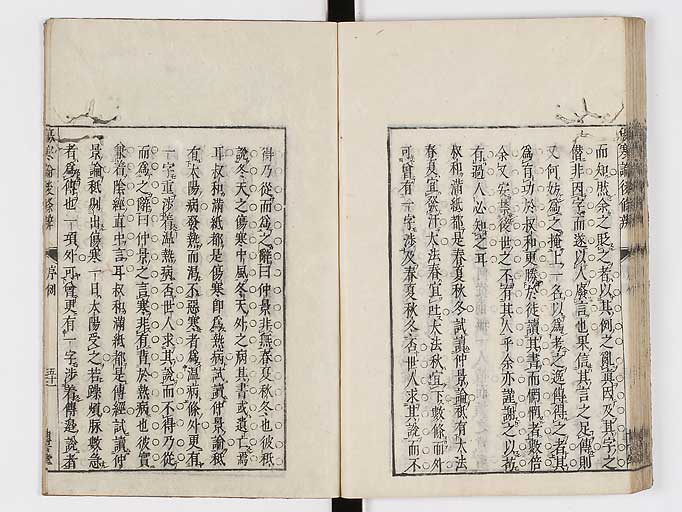 而知貶余之貶之者以其例之亂真因及其字之
僅非因字而遂以人廢言也果信其言之足傳則
又何妨為之掩上一名以為考之逸傳得之者其
為有功於叔和更勝於徒讀其書而
余又安望後世之不宥其人乎余亦謹謝之以
有過人必知之耳
叔和滿紙都是春夏秋冬試讀仲景論秪有大法
春夏宜發汗大法春宜吐大法秋宜下數條而外
可曾有一字涉及春夏秋冬否世人求其說而不
得乃從而為之辭曰仲景非無春夏秋冬也彼秪
說冬天之傷寒中風冬天外之病其書或遺亡焉
耳叔和滿紙都是傷寒即為熱病試讀仲景論秪
有太陽病發熱而渴不惡寒者為溫病條外更有
一字重涉着溫熱病否世人求其說而不得乃從
而為之辭曰仲景之言寒非有背於熱病也彼實
無着陰經直中言耳叔和滿紙都是傳經試讀仲
景論秪例出傷寒一日太陽受之若躁煩脉數急
者為傳也一項外可曾更有一字涉着傳遞說者
傷寒論後條辨
序例